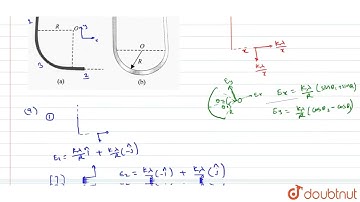 1
R
O
y
x
3
2
(a)
O
R
(b)
x
kλ/r
kλ/r
Ey
Ex
Ex = kλ/R (sinθ₂ + sinθ₁)
Ey = kλ/R (cosθ₂ - cosθ₁)
(a) ①
E₁ = kλ/R î + kλ/R (-ĵ)
E₂ = kλ/R (-î) + kλ/R (-ĵ)
doubtnut